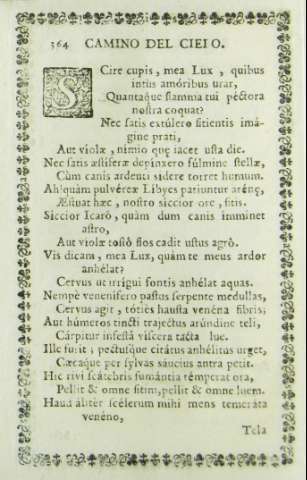 364 CAMINO DEL CIELO.
SCire cupis, mea Lux, quibus
intùs amóribus urar,
Quantaque flamma tui péctora
nostra coquat?
Nec satis extúlero sitientis imá-
gine prati,
Aut violæ, nimio quę jacet usta die.
Nec satis æstiferæ depinxero fúlmine stellæ,
Cùm canis ardenti sidere torret humum.
Ah! quàm pulvéreæ Libyes patiuntur arénę,
Æstuat hæc, nostro siccior ore, sitis.
Siccior Icarô, quàm dum canis imminet
astro,
Aut violæ tostô flos cadit ustus agrô.
Vis dicam, mea Lux, quàm te meus ardor
anhélat?
Cervus ut irrigui fontis anhélat aquas.
Nempè venenífero pastus serpente medullas,
Cervus agit, tóties hausta venéna fibris;
Aut húmeros tincti trajectus arúndine teli,
Cárpitur infestâ víscera tacta lue.
Ille furit; pectusque citátus anhélitus urget,
Cæcaque per sylvas sáucius antra petit.
Hic rivi scátebris fumántia témperat ora,
Pellit & omne sitim, pellit & omne luem.
Haud áliter scélerum mihi mens temeráta
venéno,
Tela